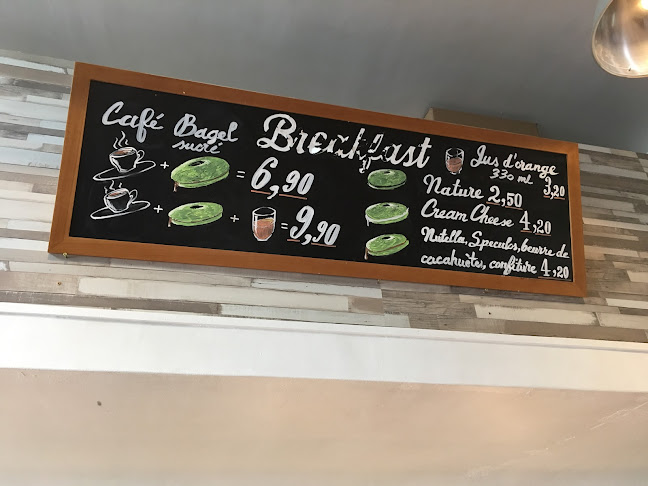 Breakfast
Café Bagel
sucré
+ = 6,90
+ + = 9,90
Jus d'orange
330 ml 3,20
Nature 2,50
Cream Cheese 4,20
Nutella, Speculos, beurre de
cacahuètes, confiture 4,20